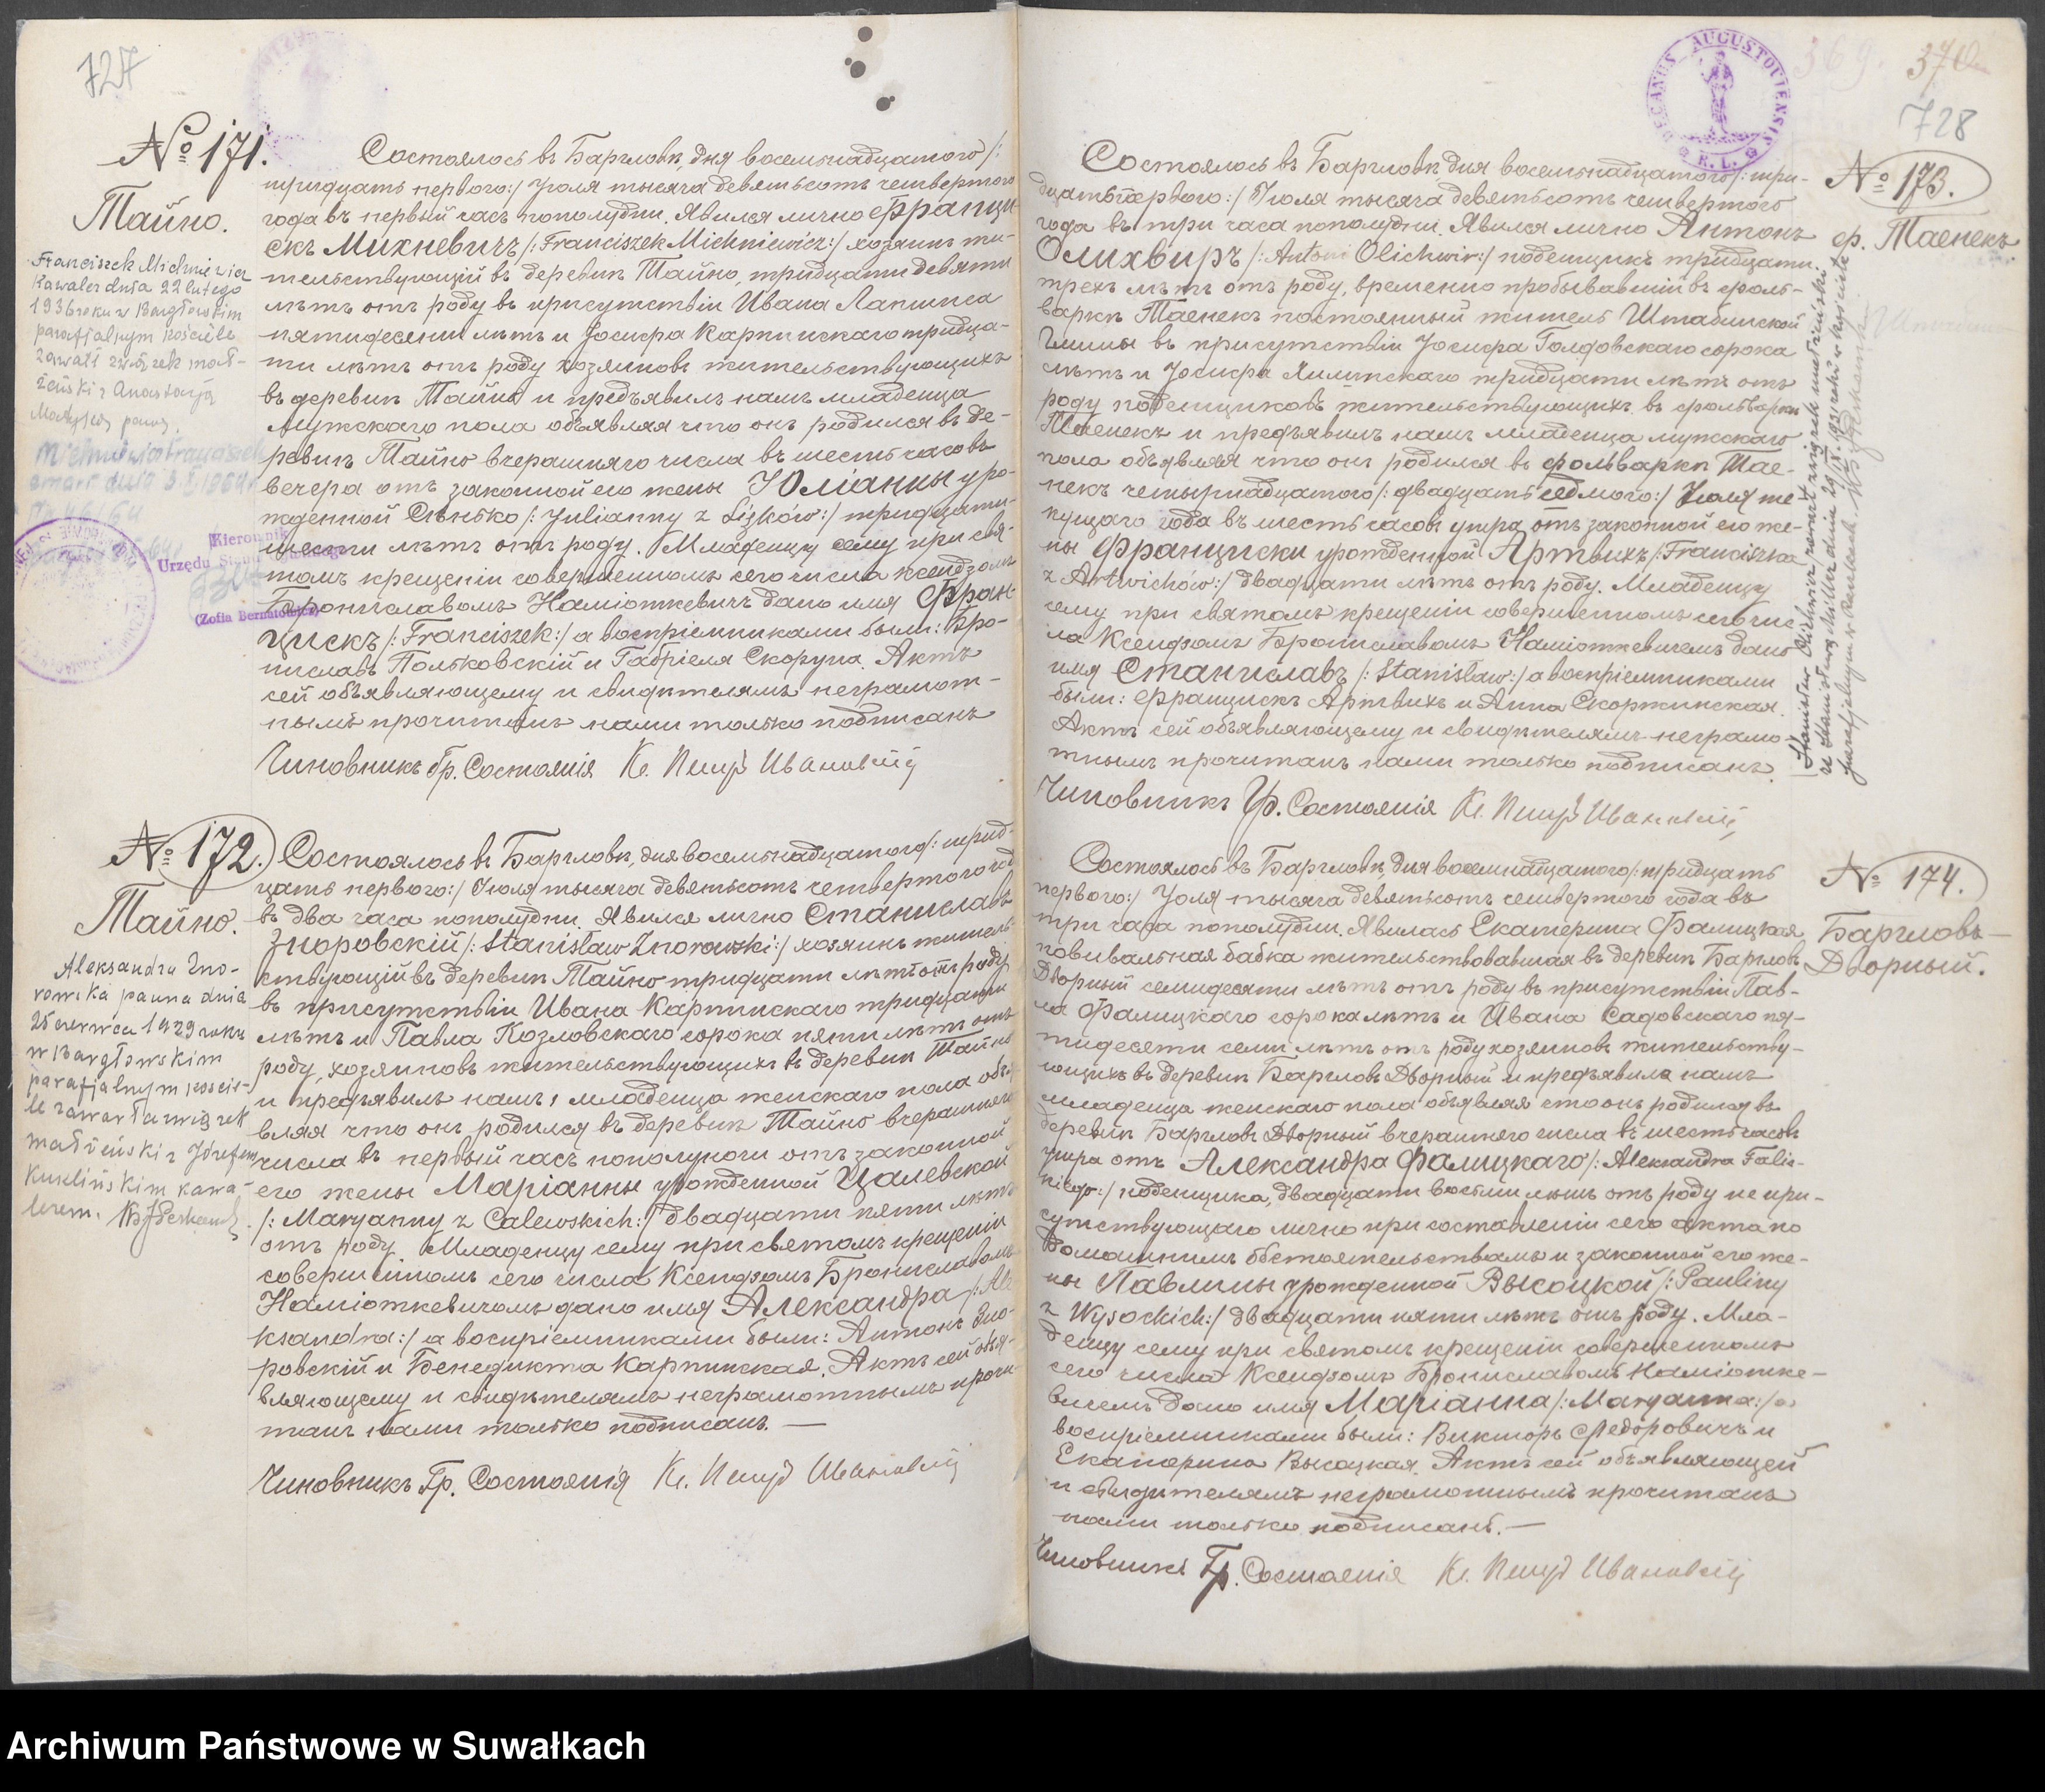 727
№ 171.
Тайно.
Состоялось въ Баргловѣ, дня восемьнадцатаго /:
тридцать перваго:/ Іюля тысяча девятьсотъ четвертого
года въ первый часъ пополудни. Явился лично Францы-
скъ Михневичъ /: Franciszek Michniewicz:/ хозяинъ жи-
тельствующій въ деревнѣ Тайно, тридцати девяти
лѣтъ отъ роду въ присутствіи Ивана Лапинса
пятидесяти лѣтъ и Іосифа Карпинскаго тридца-
ти лѣтъ отъ роду хозяиновъ жительствующихъ
въ деревнѣ Тайно и предъявилъ намъ младенца
мужскаго пола объявляя что онъ родился въ де-
ревнѣ Тайно вчерашняго числа въ шесть часовъ
вечера отъ законной его жены Юліанны уро-
жденной Слѣнзко /: Julianny z Ślązków:/ тридцати
шести лѣтъ отъ роду. Младенцу сему при свя-
томъ крещеніи совершенномъ сего числа ксендзомъ
Брониславомъ Наміоткевичъ дано имя Фран-
цискъ /: Franciszek:/ а воспріемниками были: Бро-
ниславъ Польковскій и Габріеля Скорупа. Актъ
сей объявляющему и свидѣтелямъ неграмот-
нымъ прочитанъ нами только подписанъ
Чиновникъ Гр. Состоянія Кс. Петръ Ивановскій
Franciszek Michniewicz
Kawaler dnia 22 lutego
1936 roku w Bargłowskim
parafjalnym kościele
zawarł związek mał-
żeński z Anastazją
Michniewicz Franciszek
Kierownik
Urzędu Stanu
(Zofia Bernatowicz)
№ 172.
Тайно.
Состоялось въ Баргловѣ, дня восемьнадцатаго /: трид-
цать перваго:/ Іюля тысяча девятьсотъ четвертого года
въ два часа пополудни. Явился лично Станиславъ
Зноровскій /: Stanisław Znorowski:/ хозяинъ житель-
ствующій въ деревнѣ Тайно тридцати лѣтъ отъ роду
въ присутствіи Ивана Карпинскаго тридцати
лѣтъ и Павла Козловскаго сорока пяти лѣтъ отъ
роду, хозяиновъ жительствующихъ въ деревнѣ Тайно
и предъявилъ намъ младенца женскаго пола объя-
вляя что онъ родился въ деревнѣ Тайно вчерашняго
числа въ первый часъ пополуночи отъ законной
его жены Маріанны урожденной Цалевской
/: Maryanny z Calewskich:/ двадцати пяти лѣтъ
отъ роду. Младенцу сему при святомъ крещеніи
совершенномъ сего числа Ксендзомъ Брониславомъ
Наміоткевичомъ дано имя Александра /: Ale
ksandra:/ а воспріемниками были: Антонъ Зно-
ровскій и Бенедикта Карпинская. Актъ сей объя-
вляющему и свидѣтелямъ неграмотнымъ прочи
танъ нами только подписанъ. —
Чиновникъ Гр. Состоянія Кс. Петръ Ивановскій
Aleksandra Zno-
rowska panna dnia
25 czerwca 1929 roku
w Bargłowskim
parafjalnym koście-
le zawarła związek
małżeński z Józefem
Kuklińskim kawa-
lerem.
DECANUS AUGUSTOVIENSIS R. L.
369.
370
728
№ 173.
ф. Таенекъ
Состоялось въ Баргловѣ дня восемьнадцатаго /: три-
дцать перваго:/ Іюля тысяча девятьсотъ четвертого
года въ три часа пополудни. Явился лично Антонъ
Олихвиръ /: Antoni Olichwir:/ поденщикъ тридцати
трехъ лѣтъ отъ роду, временно пробывавшій въ фоль-
варкѣ Таенекъ постоянный житель Штабинской
Гмины въ присутствіи Іосифа Голдовскаго сорока
лѣтъ и Іосифа Ялинскаго тридцати лѣтъ отъ
роду поденщиковъ жительствующихъ въ фольваркѣ
Таенекъ и предъявилъ намъ младенца мужскаго
пола объявляя что онъ родился въ фольваркѣ Тае-
некъ четырнадцатого /: двадцать седмого:/ Іюля те-
кущаго года въ шесть часовъ утра, отъ законной его же-
ны Франциски урожденной Артвихъ /: Franciszka
z Artwichów:/ двадцати лѣтъ отъ роду. Младенцу
сему при святомъ крещеніи совершенномъ сего чис
ла Ксендзомъ Брониславомъ Наміоткевичемъ дано
имя Станиславъ /: Stanisław:/ а воспріемниками
были: Францискъ Артвихъ и Анна Скоржинская.
Актъ сей объявляющему и свидѣтелямъ неграмо
тнымъ прочитанъ нами только подписанъ.
Чиновникъ Гр. Состоянія Кс. Петръ Ивановскій
Stanisław Olichwir zawarł związek małżeński
№ 174.
Баргловъ—
Дворный.
Состоялось въ Баргловѣ, дня восемнадцатаго /: тридцать
перваго:/ Іюля тысяча девятьсотъ четвертого года въ
три часа пополудни. Явилась Екатерина Фалицкая
повивальная бабка жительствовавшая въ деревнѣ Баргловъ
Дворный семидесяти лѣтъ отъ роду въ присутствіи Пав-
ла Фалицкаго сорока лѣтъ и Ивана Садовскаго пя-
тидесяти семи лѣтъ отъ роду хозяиновъ жительству-
ющихъ въ деревнѣ Баргловъ Дворный и предъявила намъ
младенца женскаго пола объявляя что онъ родился въ
деревнѣ Баргловъ Дворный вчерашнего числа въ шесть часовъ
утра отъ Александра Фалицкаго /: Aleksandra Falic-
kiego:/ поденщика, двадцати восьми лѣтъ отъ роду не при-
сутствующаго лично при составленіи сего акта по
домашнимъ обстоятельствамъ и законной его же-
ны Павлины урожденной Высоцкой /: Pauliny
z Wysockich:/ двадцати пяти лѣтъ отъ роду. Мла-
денцу сему при святомъ крещеніи совершенномъ
сего числа Ксендзомъ Брониславомъ Наміотке-
вичемъ дано имя Маріанна /: Maryanna:/ а
воспріемниками были: Викторъ Федоровичъ и
Екатерина Высоцкая. Актъ сей объявляющей
и свидѣтелямъ неграмотнымъ прочитанъ
нами только подписанъ. —
Чиновникъ Гр. Состоянія Кс. Петръ Ивановскій
Archiwum Państwowe w Suwałkach